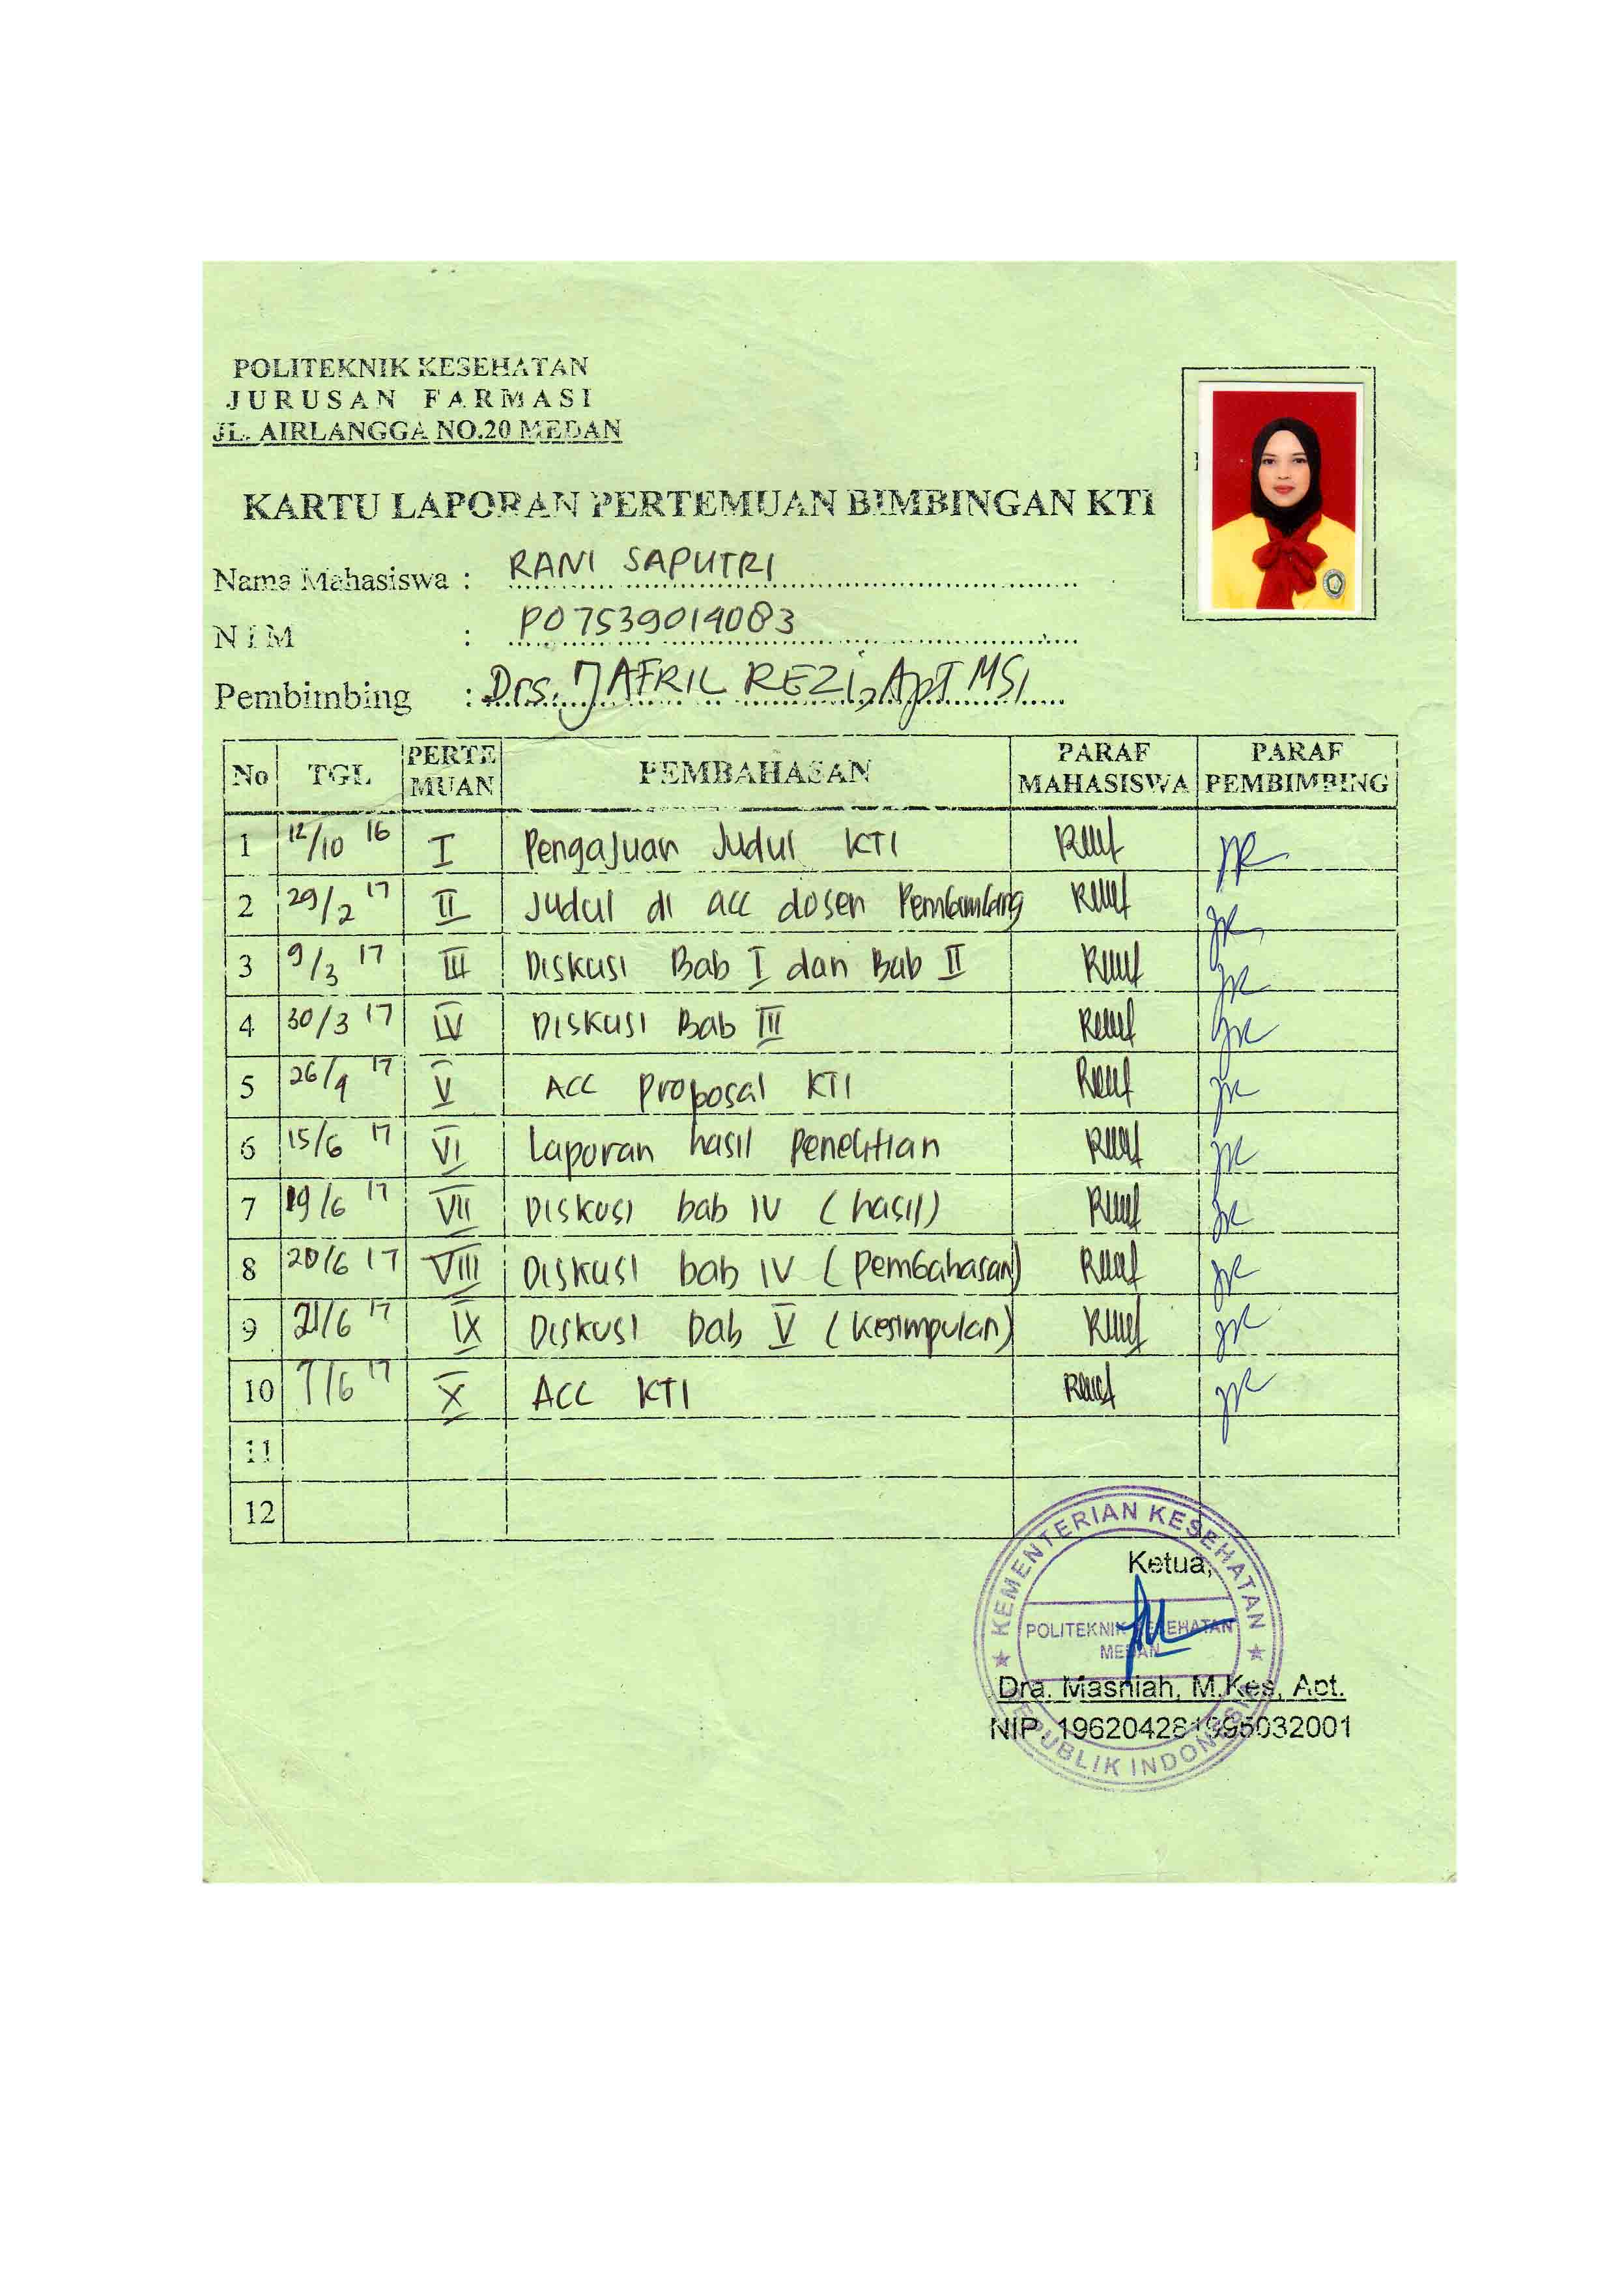 POLITEKNIK KESEHATAN
JURUSAN FARMASI
JL. AIRLANGGA NO.20 MEDAN
KARTU LAPORAN PERTEMUAN BIMBINGAN KTI
Nama Mahasiswa : RANI SAPUTRI
NIM : P07539014083
Pembimbing : Drs. JAFRIL REZI, Apt MSI
No TGL PERTEMUAN PEMBAHASAN PARAF MAHASISWA PARAF PEMBIMBING
1 12/10 16 I Pengajuan Judul KTI
2 29/2 17 II Judul di acc dosen Pembimbing
3 9/3 17 III Diskusi Bab I dan Bab II
4 30/3 17 IV Diskusi Bab III
5 26/4 17 V ACC Proposal KTI
6 15/6 17 VI Laporan hasil Penelitian
7 19/6 17 VII Diskusi bab IV (hasil)
8 20/6 17 VIII Diskusi bab IV (Pembahasan)
9 21/6 17 IX Diskusi bab V (Kesimpulan)
10 7/6 17 X ACC KTI
11
12
KEMENTERIAN KESEHATAN
Ketua,
POLITEKNIK KESEHATAN
MEDAN
Dra. Masniah, M.Kes, Apt.
NIP. 196204281995032001
REPUBLIK INDONESIA